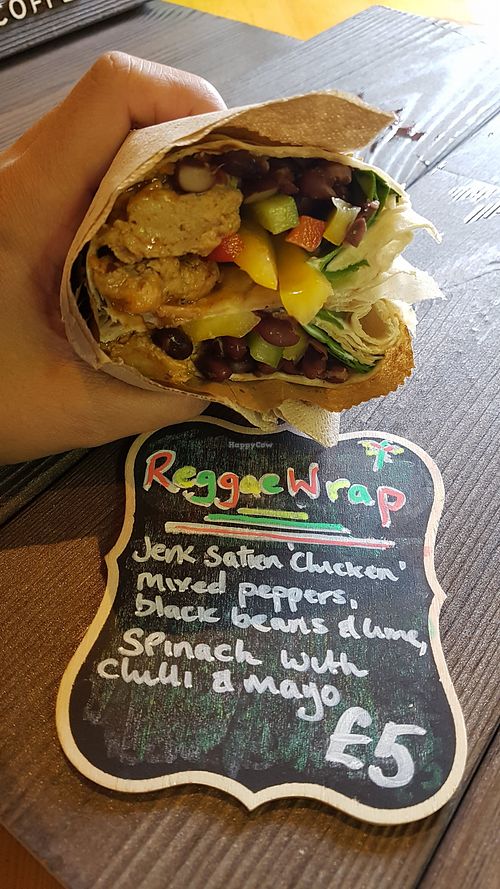 COFFE
HappyCow
Reggae Wrap
Jerk Satien 'Chicken'
mixed peppers,
black beans & lime,
Spinach with
Chilli & Mayo
£5